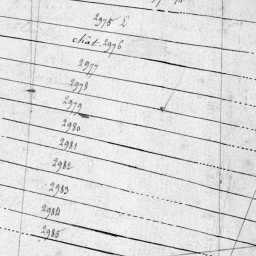 2975 2
chât. 2976
2977
2978
2979
2980
2981
2982
2983
2984
2985